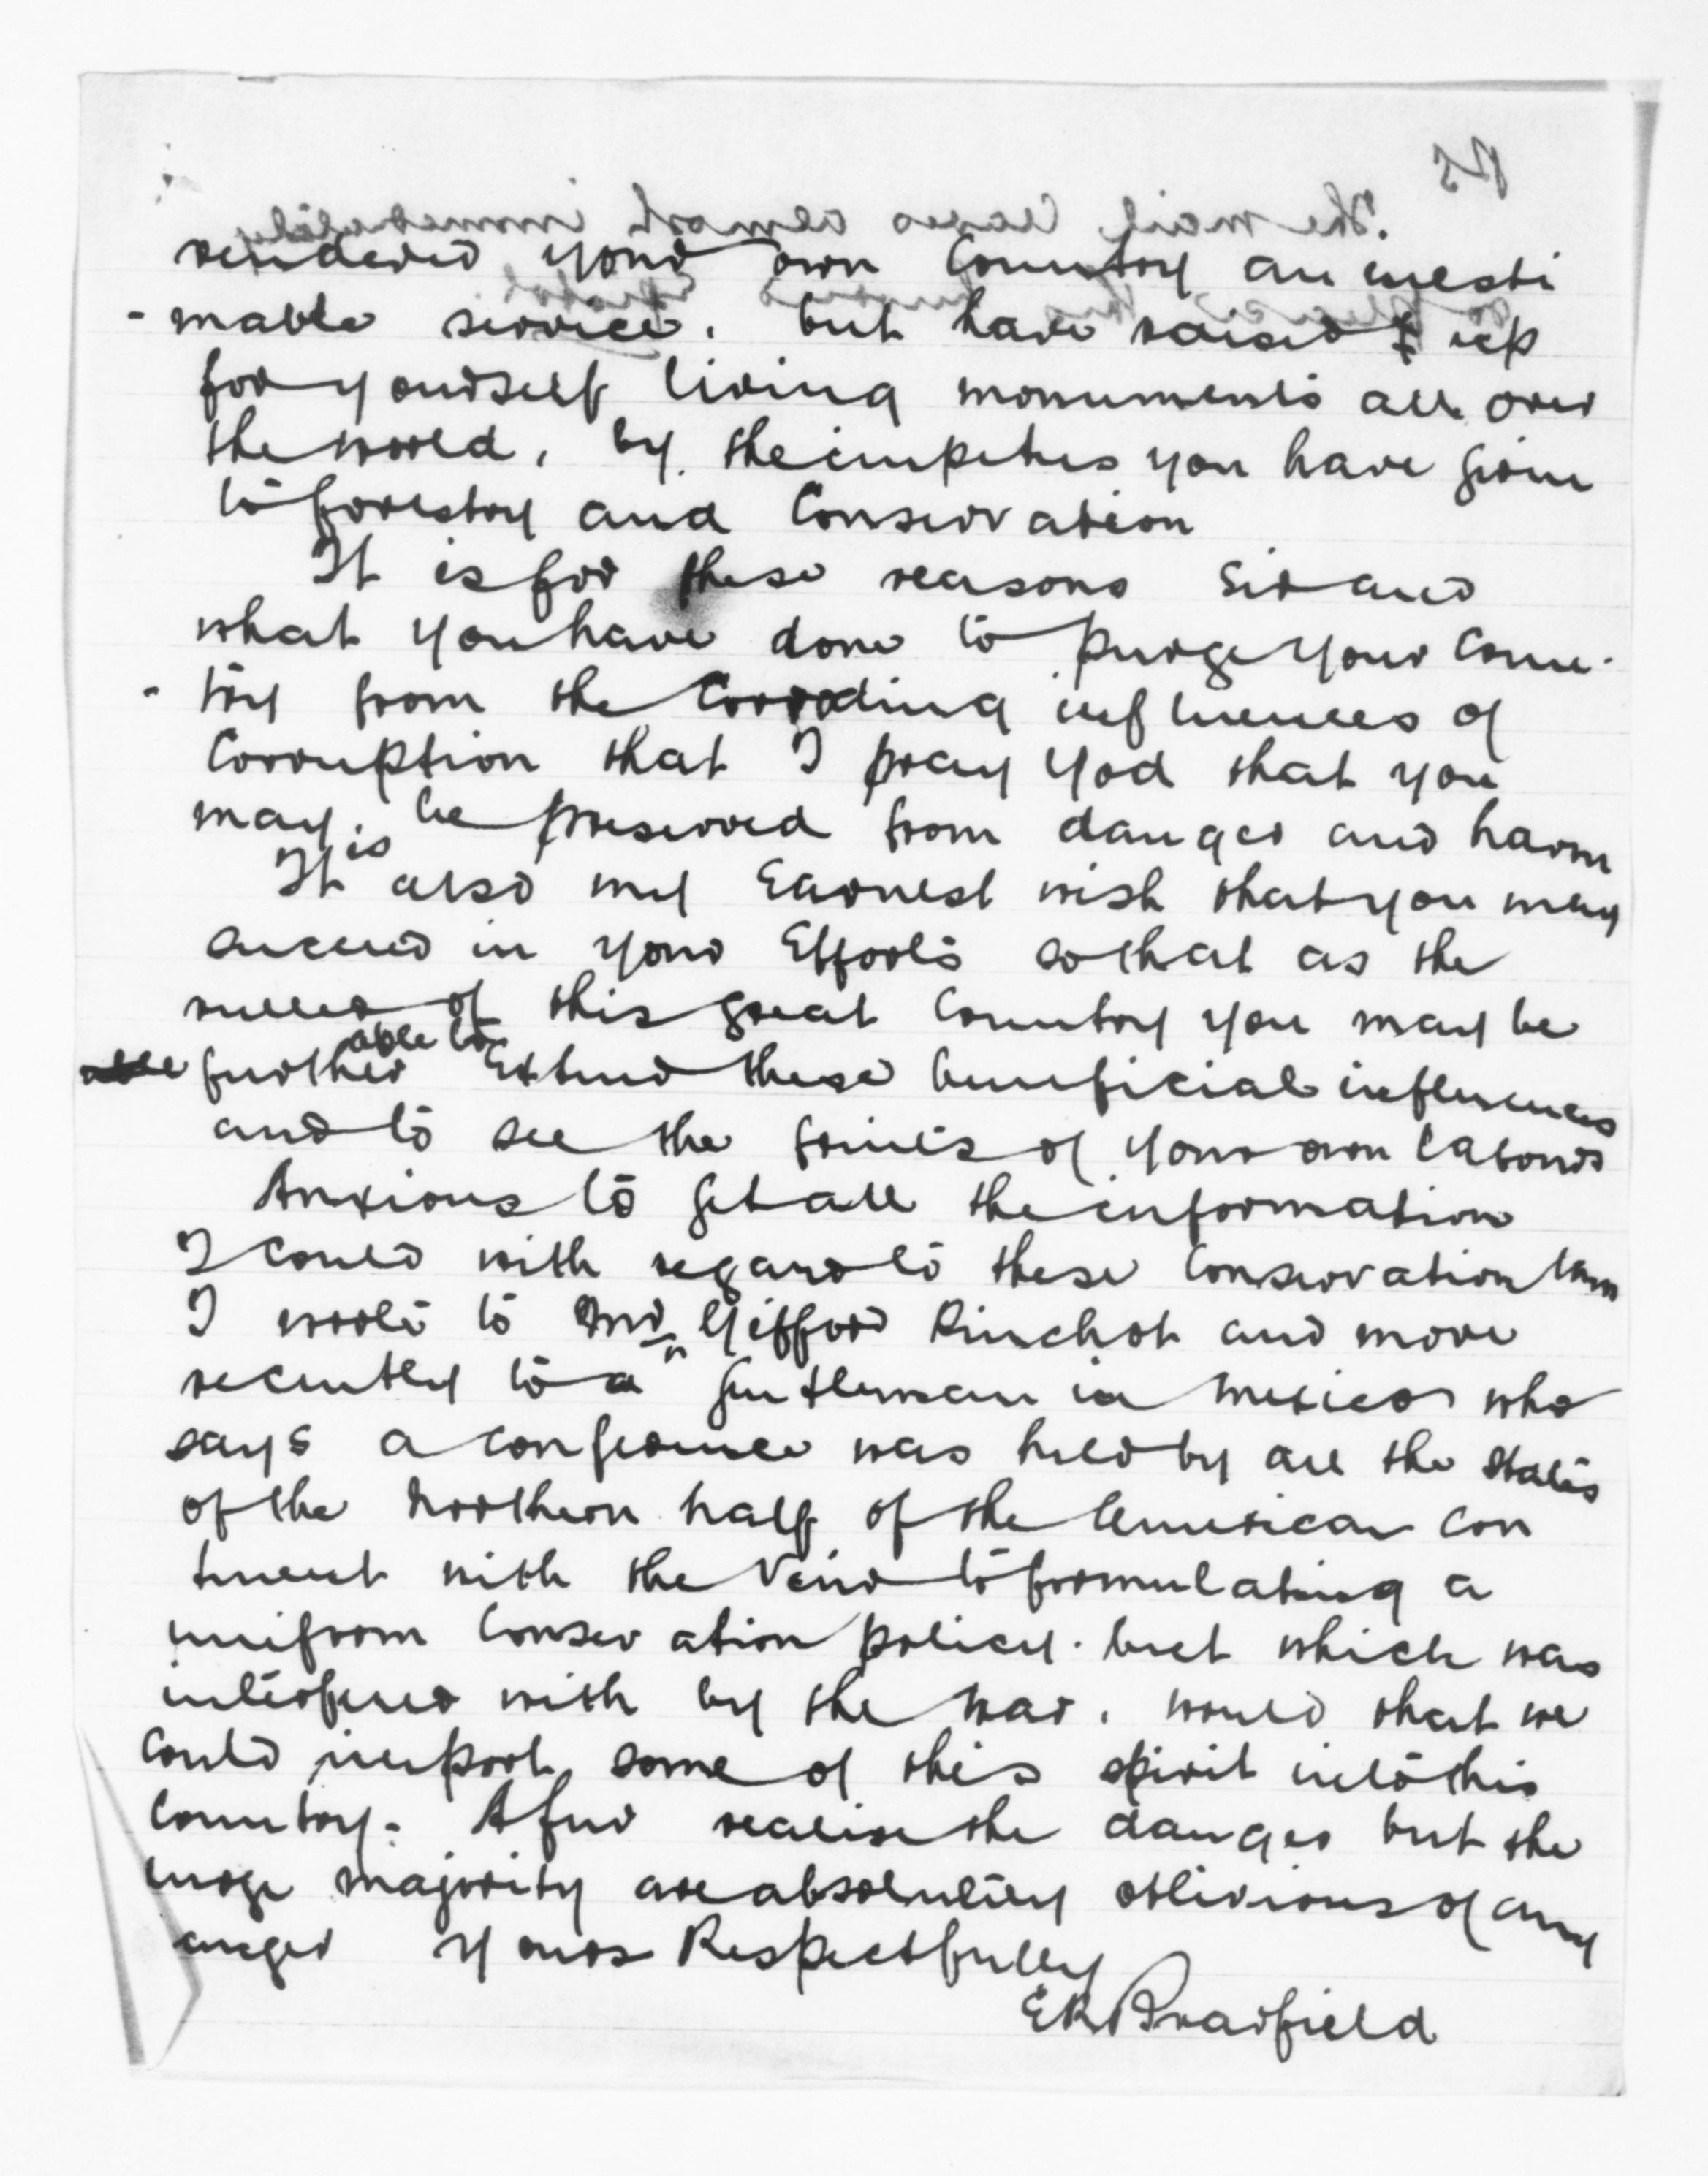 rendered your own Country an inesti
- mable service. but have raised up
for yourself living monuments all over
the world, by the impetus you have given
to forestry and Conservation
It is for these reasons Sir and
what you have done to purge your Coun-
- try from the Corroding influences of
Corruption that I pray God that you
may be preserved from danger and harm
It is also my Earnest wish that you may
succeed in your Efforts so that as the
ruler of this great Country you may be
further able to Extend these beneficial influences
and to see the fruits of your own labours
Anxious to get all the information
I could with regard to these Conservation laws
I wrote to Mr Gifford Pinchot and more
recently to a gentleman in Mexico who
says a conference was held by all the states
of the Northern half of the American con
tinent with the view to formulating a
uniform Conservation policy. but which was
interfered with by the war. would that we
could import some of this spirit into this
Country. A few realise the danger but the
large majority are absolutely oblivious of any
anger Yours Respectfully
E R Bradfield